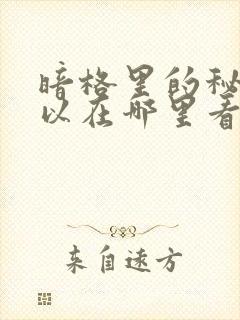 暗格里的秘
以在哪里看
来自远方